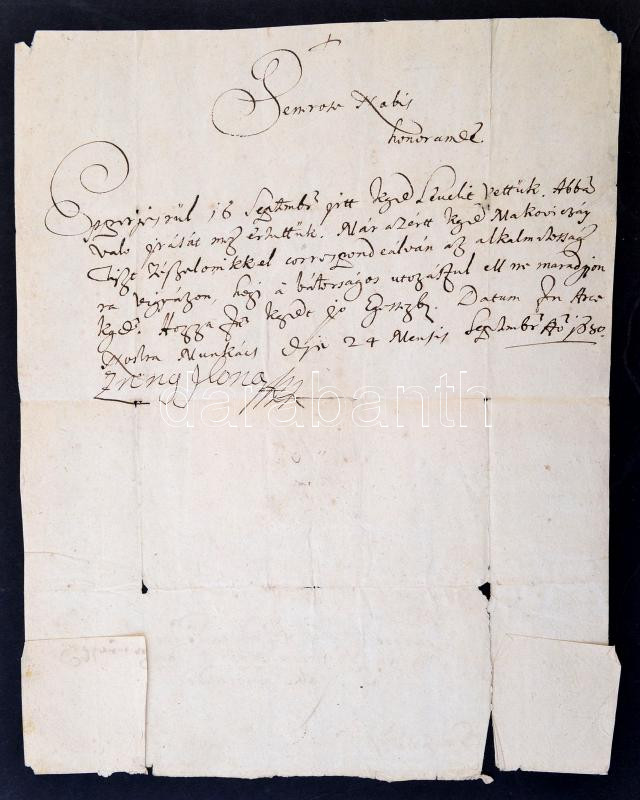 Generose Nobis
honorande.
Eperjesrül 16 Septembr írtt kgd Levelit vettük. Abba
való írását megh értettük. Már azértt kgd Makoviczay
Tiszt correspondeálván az alkalmatosság
ra vigyázzon, hogy a bátorságos utozástul ell ne maradgyon
kgd. Hozza Jstē kgdt jó Datum In Arce
Nostra Munkács Die 24 Mensis Septembr Aō 1680.
Zrenÿ Ilona
darabanth